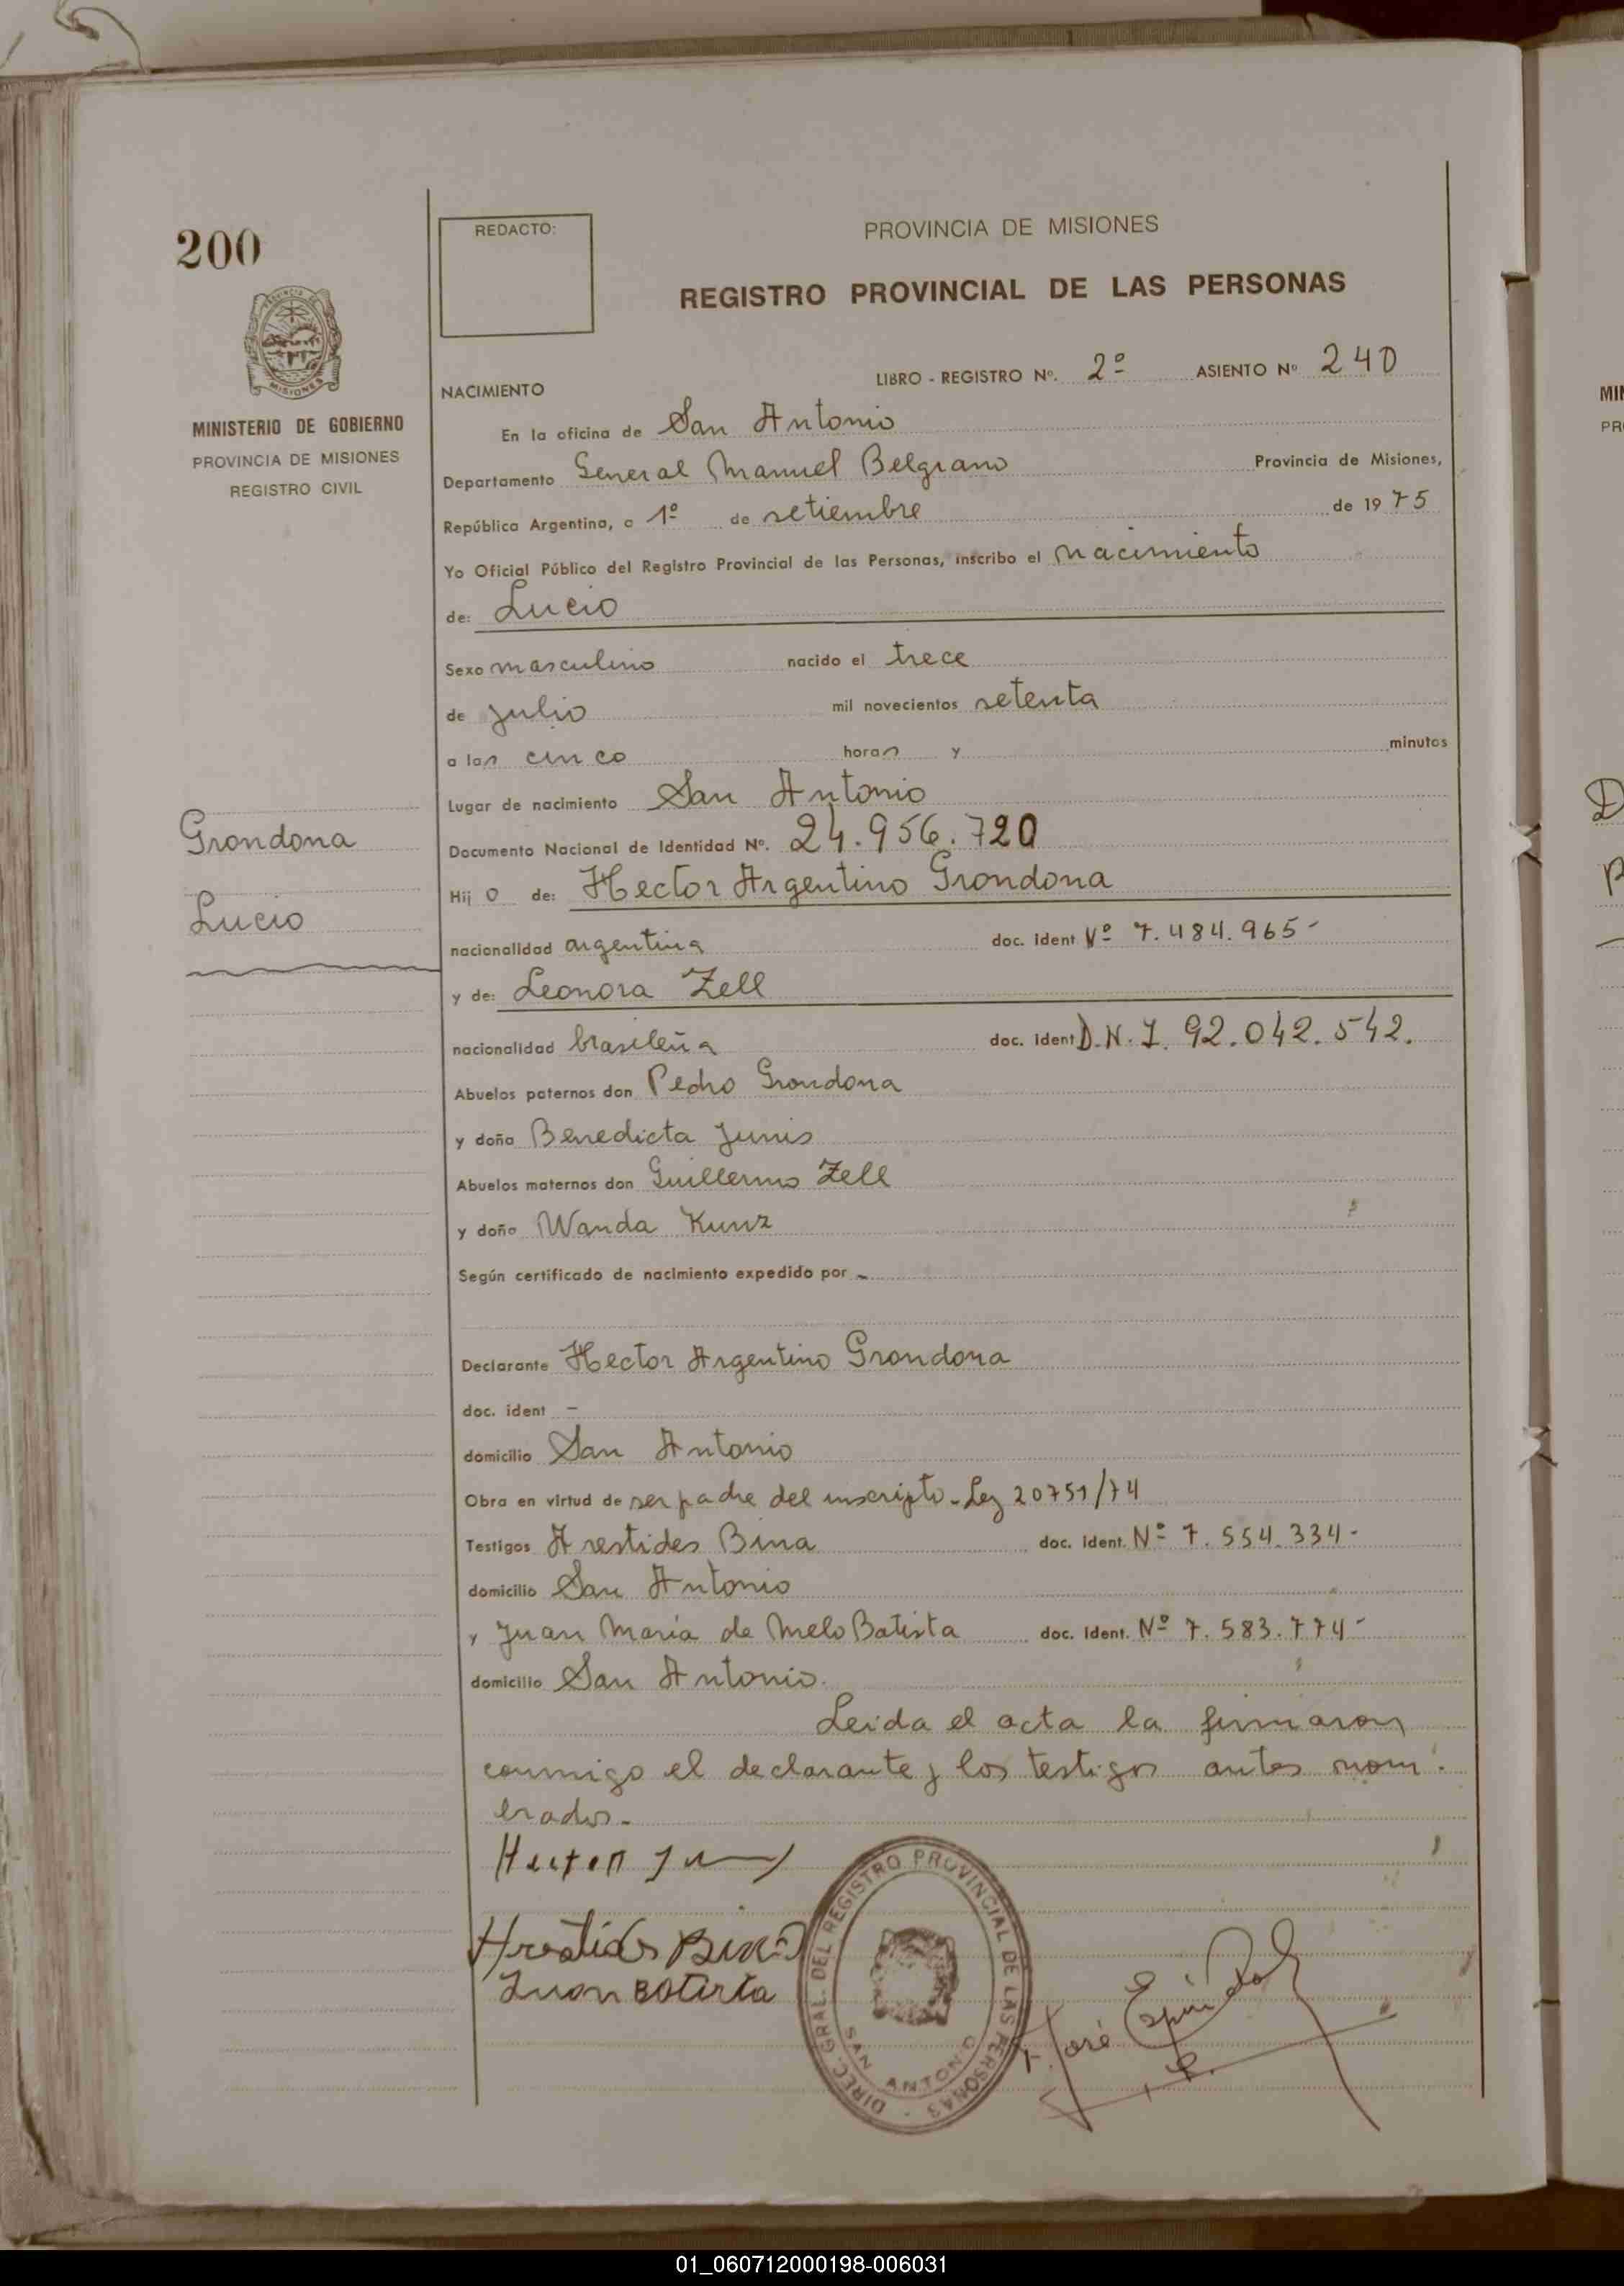 200
REDACTO:
PROVINCIA DE MISIONES
REGISTRO PROVINCIAL DE LAS PERSONAS
PROVINCIA DE
MISIONES
MINISTERIO DE GOBIERNO
PROVINCIA DE MISIONES
REGISTRO CIVIL
NACIMIENTO LIBRO - REGISTRO Nº. 2º ASIENTO Nº 240
En la oficina de San Antonio
Departamento General Manuel Belgrano Provincia de Misiones,
República Argentina, a 1º de setiembre de 1975
Yo Oficial Público del Registro Provincial de las Personas, inscribo el nacimiento
de: Lucio
Sexo masculino nacido el trece
de julio mil novecientos setenta
a las cinco horas y minutos
Lugar de nacimiento San Antonio
Grondona
Lucio
Documento Nacional de Identidad Nº. 24.956.720
Hijo de: Hector Argentino Grondona
nacionalidad argentina doc. ident Nº 7.484.965-
y de: Leonora Zell
nacionalidad brasileña doc. ident D.N.I. 92.042.542.
Abuelos paternos don Pedro Grondona
y doña Benedicta Junis
Abuelos maternos don Guillermo Zell
y doña Wanda Kunz
Según certificado de nacimiento expedido por -
Declarante Hector Argentino Grondona
doc. ident -
domicilio San Antonio
Obra en virtud de ser padre del inscripto - Ley 20751/74
Testigos Arestides Bina doc. ident. Nº 7.554.334-
domicilio San Antonio
y Juan María de Melo Batista doc. ident. Nº 7.583.774-
domicilio San Antonio.
Leida el acta la firmaron
conmigo el declarante y los testigos antes nom-
brados.-
Arestides Bina
Juan Batista
DIREC. GRAL. DEL REGISTRO PROVINCIAL DE LAS PERSONAS -
SAN ANTONIO
José
01_060712000198-006031